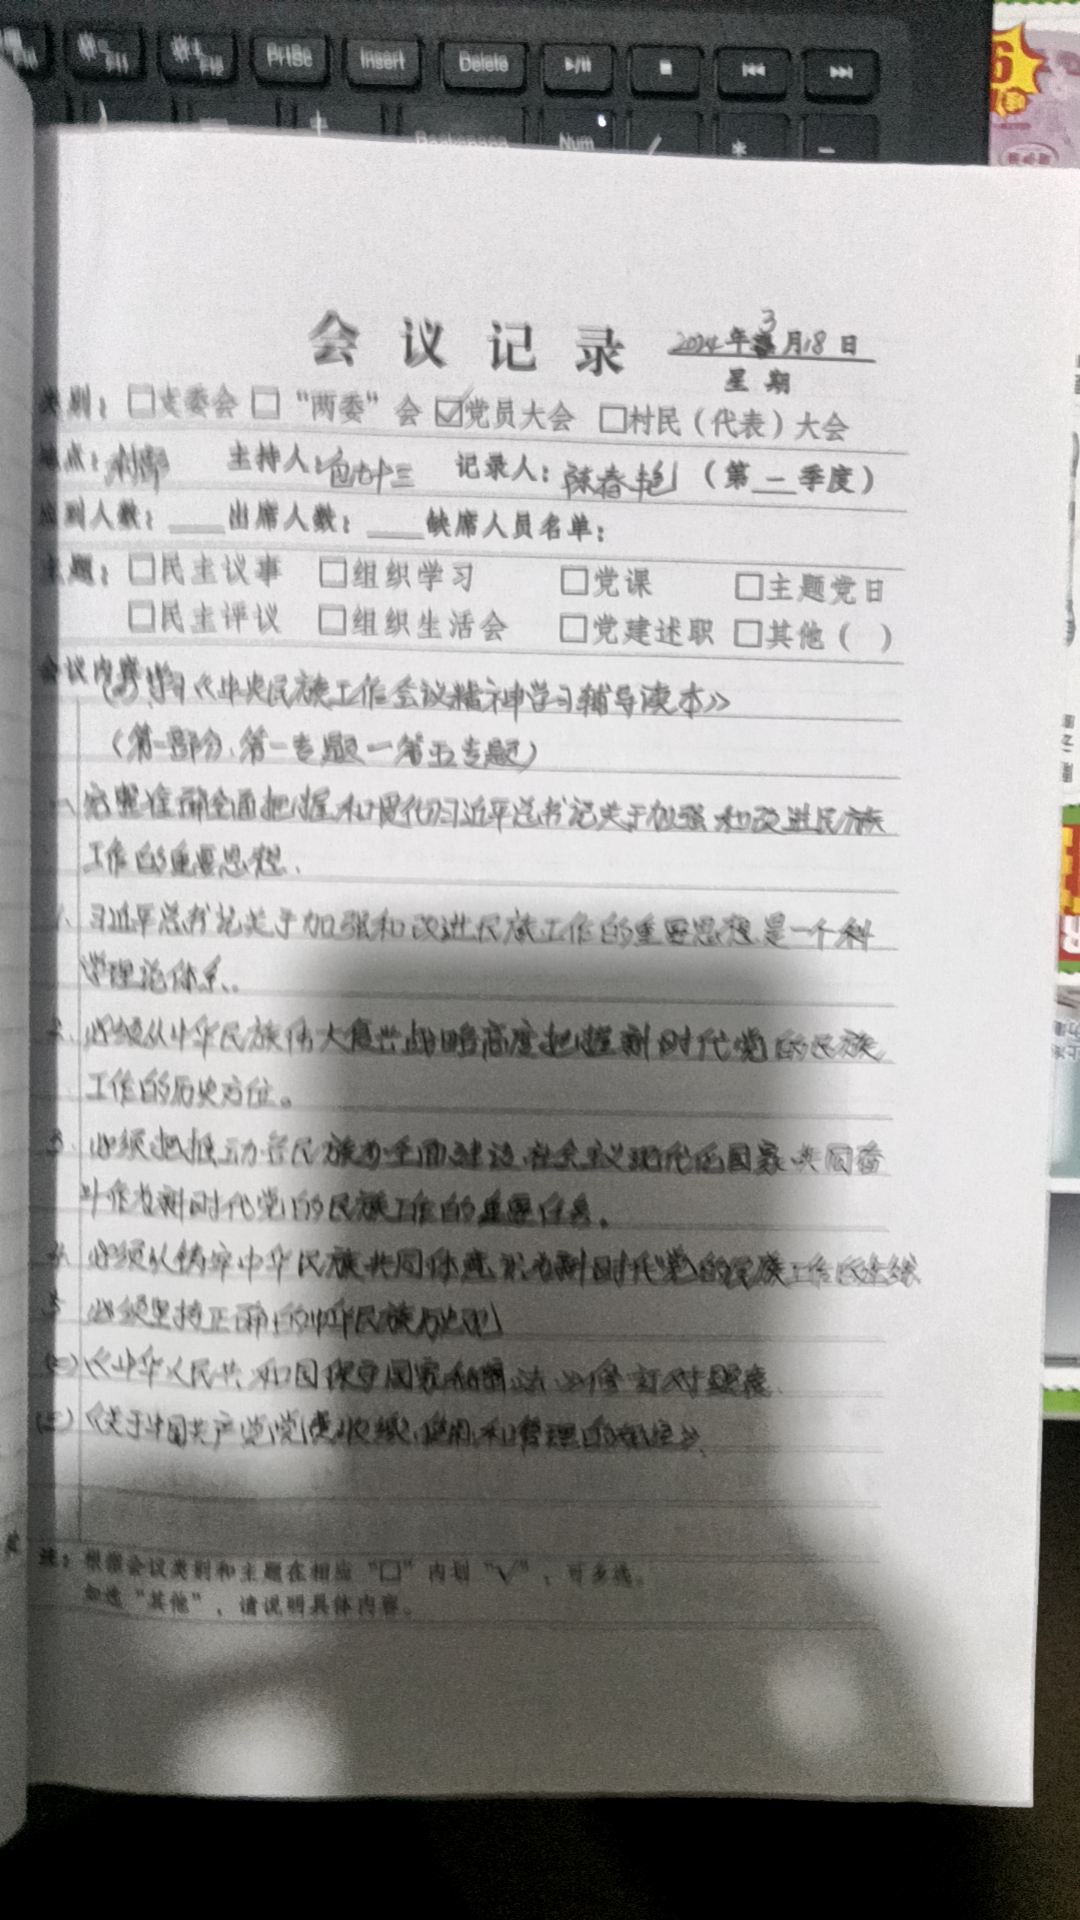 F11
F12
PrtSc
Insert
Delete
Backspace
Num
会议记录
2024年3月18日
星期
类别：□支委会 □“两委”会 ☑党员大会 □村民（代表）大会
地点：村部 主持人：包七十三 记录人：陈春艳（第一季度）
应到人数：____出席人数：____缺席人员名单：
主题：□民主议事 □组织学习 □党课 □主题党日
□民主评议 □组织生活会 □党建述职 □其他（ ）
会议内容：
学习《中央民族工作会议精神学习辅导读本》
（第一部分、第一专题一第五专题）
一、完整准确全面把握和贯彻习近平总书记关于加强和改进民族
工作的重要思想.
1、习近平总书记关于加强和改进民族工作的重要思想是一个科
学理论体系。
2、必须从中华民族伟大复兴战略高度把握新时代党的民族
工作的历史方位。
3、必须把推动各民族为全面建设社会主义现代化国家共同奋
斗作为新时代党的民族工作的重要任务。
4、必须以铸牢中华民族共同体意识为新时代党的民族工作的主线
5 必须坚持正确的中华民族历史观
(二)《中华人民共和国保守国家秘密法》修订对照表.
(三)《关于中国共产党党费收缴、使用和管理的规定》.
注：根据会议类别和主题在相应“□”内划“√”，可多选。
如选“其他”，请说明具体内容。